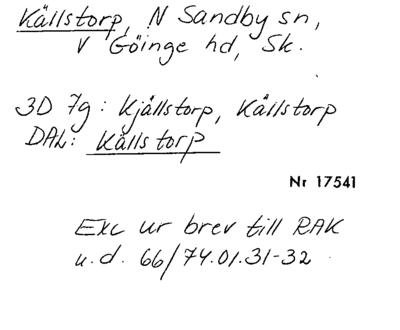 Källstorp, N Sandby sn,
V Göinge hd, Sk.
3D 7g: Kjällstorp, Källstorp
DAL: Källstorp
Nr 17541
Exc ur brev till RAK
u.d. 66/74.01.31-32